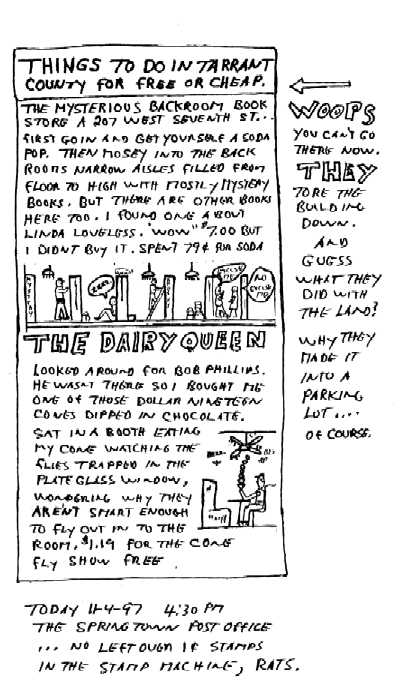 THINGS TO DO IN TARRANT
COUNTY FOR FREE OR CHEAP.
THE MYSTERIOUS BACKROOM BOOK
STORE A 207 WEST SEVENTH ST...
FIRST GO IN AND GET YOURSELF A SODA
POP. THEN MOSEY INTO THE BACK
ROOMS NARROW AISLES FILLED FROM
FLOOR TO HIGH WITH MOSTLY MYSTERY
BOOKS. BUT THERE ARE OTHER BOOKS
HERE TOO. I FOUND ONE ABOUT
LINDA LOVELESS. "WOW" $7.00 BUT
I DIDNT BUY IT. SPENT 79¢ FOR SODA
EXCUSE ME
NO EXCUSE ME
THE DAIRY QUEEN
LOOKED AROUND FOR BOB PHILLIPS.
HE WASNT THERE SO I BOUGHT ME
ONE OF THOSE DOLLAR NINETEEN
CONES DIPPED IN CHOCOLATE.
SAT IN A BOOTH EATING
MY CONE WATCHING THE
FLIES TRAPPED IN THE
PLATE GLASS WINDOW,
WONDERING WHY THEY
ARENT SMART ENOUGH
TO FLY OUT IN TO THE
ROOM. $1.19 FOR THE CONE
FLY SHOW FREE
WOOPS
YOU CAN'T GO
THERE NOW.
THEY
TORE THE
BUILDING
DOWN.
AND
GUESS
WHAT THEY
DID WITH
THE LAND?
WHY THEY
MADE IT
INTO A
PARKING
LOT....
OF COURSE.
TODAY 11-4-97 4:30 PM
THE SPRINGTOWN POST OFFICE
... NO LEFTOUGH 1¢ STAMPS
IN THE STAMP MACHINE, RATS.